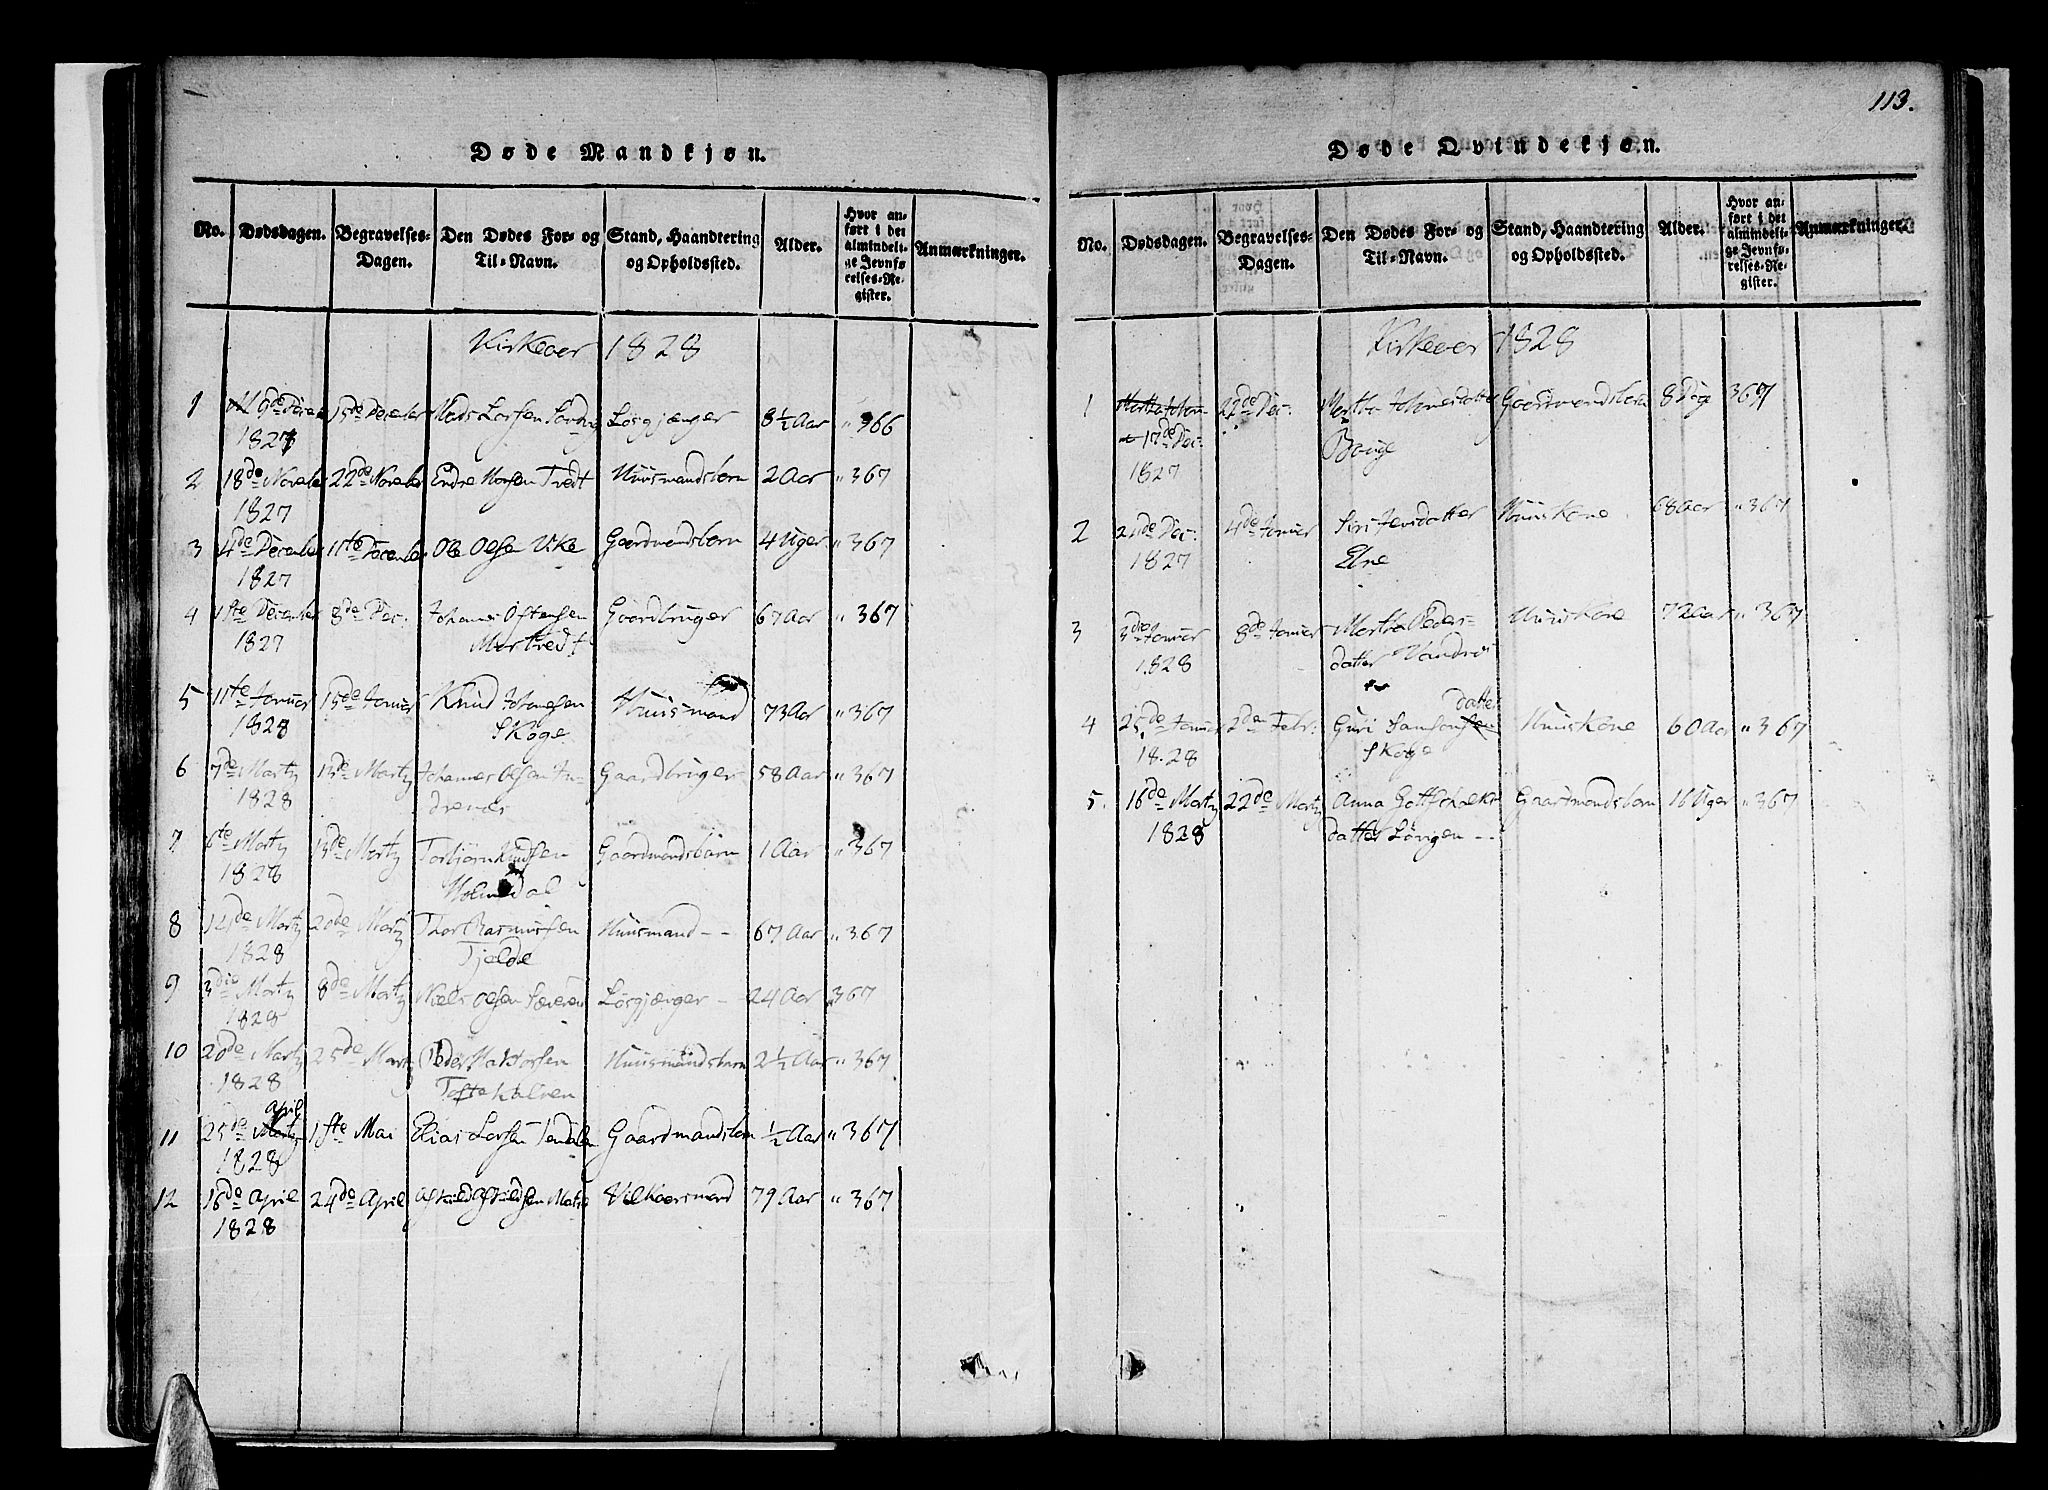 113.
Døde Mandkjøn.
No. Dødsdagen. Begravelses-Dagen. Den Dødes For- og Til-Navn. Stand, Haandtering og Opholdssted. Alder. Hvor anført i det almindelige Jevnførelses-Register. Anmærkninger.
Kirkeaar 1828
1 9de Decem 15de Decembr Mads Larsen Løsgjænger 8½ Aar " 366
1827
2 18de Novembr 22de Novembr Endre Monsen Tvedt Huusmandsbarn 2 Aar " 367
1827
3 4de Decembr 11te Decembr Ole Olsen Vike Gaardmandsbarn 4 Uger " 367
1827
4 1ste Decembr 8de Dec: Johannes Ostensen Gaardbruger 67 Aar " 367
1827 Mortvedt
5 11te Januar 15de Januar Knud Johanesen Huusmand 73 Aar " 367
1828 Skoge
6 7de Martz 13de Martz Johannes Olsen In- Gaardbruger 58 Aar " 367
1828 drenæs
7 6te Martz 13de Martz Torbjørn Knudsen Gaardmandsbarn 1 Aar " 367
1828 Holmedal
8 14de Martz 20de Martz Thor Rasmussen Huusmand - - 67 Aar " 367
1828 Tjelde
9 3die Martz 8de Martz Niels Olsen Særeren Løsgjænger - 24 Aar 367
1828
10 20de Martz 25de Martz Peder Hatlorsen Huusmandsbarn 2½ Aar " 367
1828 Toftekalven
april
11 25de Martz 1ste Mai Elias Larsen Gaardmandsbarn ½ Aar " 367
1828
12 16de April 24de April Askild Askildsen Matre Vilkaarsmand 79 Aar " 367
1828
Døde Qvindekjøn.
No. Dødsdagen. Begravelses-Dagen. Den Dødes For- og Til-Navn. Stand, Haandtering og Opholdssted. Alder. Hvor anført i det almindelige Jevnførelses-Register. Anmærkninger.
Kirkeaar 1828
1 Martha Johan- 22de Dec: Martha Johnesdatter Gaardmandsbarn 8 Dage 367
17de Dec: Bouge
1827
2 24de Dec: 4de Januar Siri Jensdatter Huuskone 68 Aar " 367
1827 Elne
3 3die Januar 8de Januar Martha Peders- Huuskone 72 Aar " 367
1828 datter
datter
4 25de Januar 2den Febr: Guri Samsonsen Huuskone 60 Aar " 367
1828 Skoge
5. 16de Martz 22de Martz Anna Gottschalks Gaardmandsbarn 16 Uger " 367
1828 datter Løvigen - -